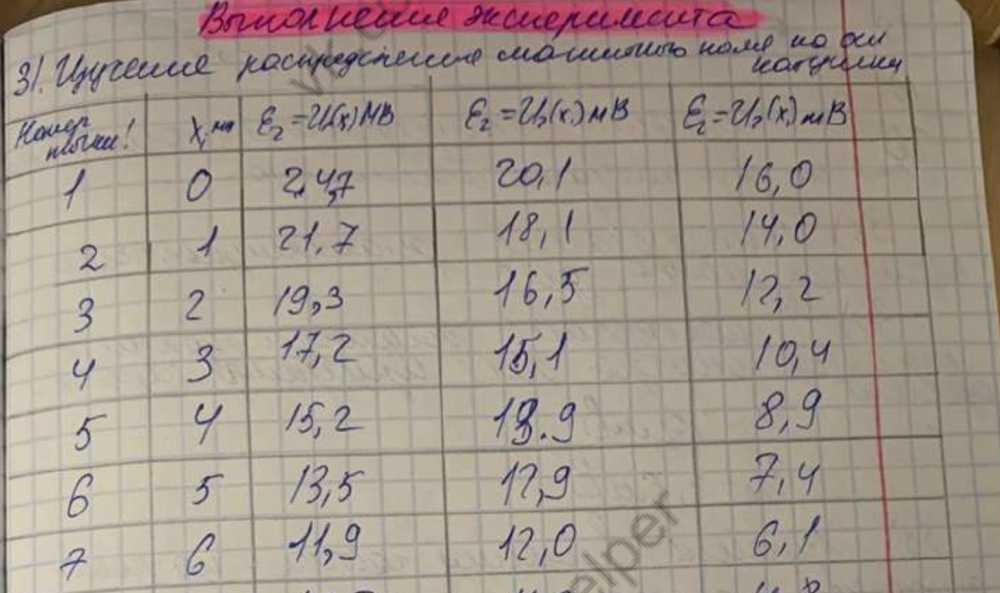 Выполнение эксперимента
3). Изучение распределение магнитного поле по оси
катушки
Номер точки! X, мм ε₂=U₂(x) мВ ε₂=U₂(x) мВ ε₂=U₂(x) мВ
1 0 24,7 20,1 16,0
2 1 21,7 18,1 14,0
3 2 19,3 16,5 12,2
4 3 17,2 15,1 10,4
5 4 15,2 13.9 8,9
6 5 13,5 12,9 7,4
7 6 11,9 12,0 6,1
elper